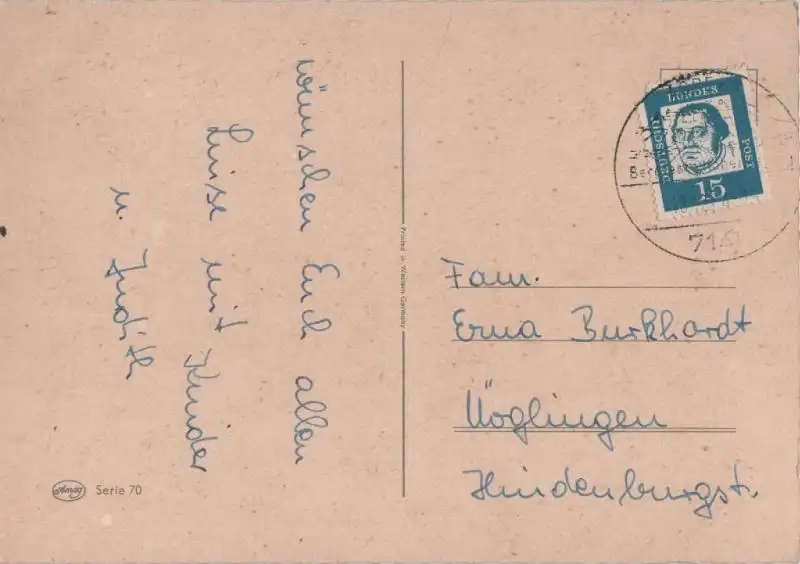 wünschen Euch allen
Luise mit Kinder
u. Judith
Printed in Western Germany
Amag Serie 70
DEUTSCHE
BUNDES
POST
15
714
Fam.
Erna Burkhardt
Möglingen
Hindenburgst.